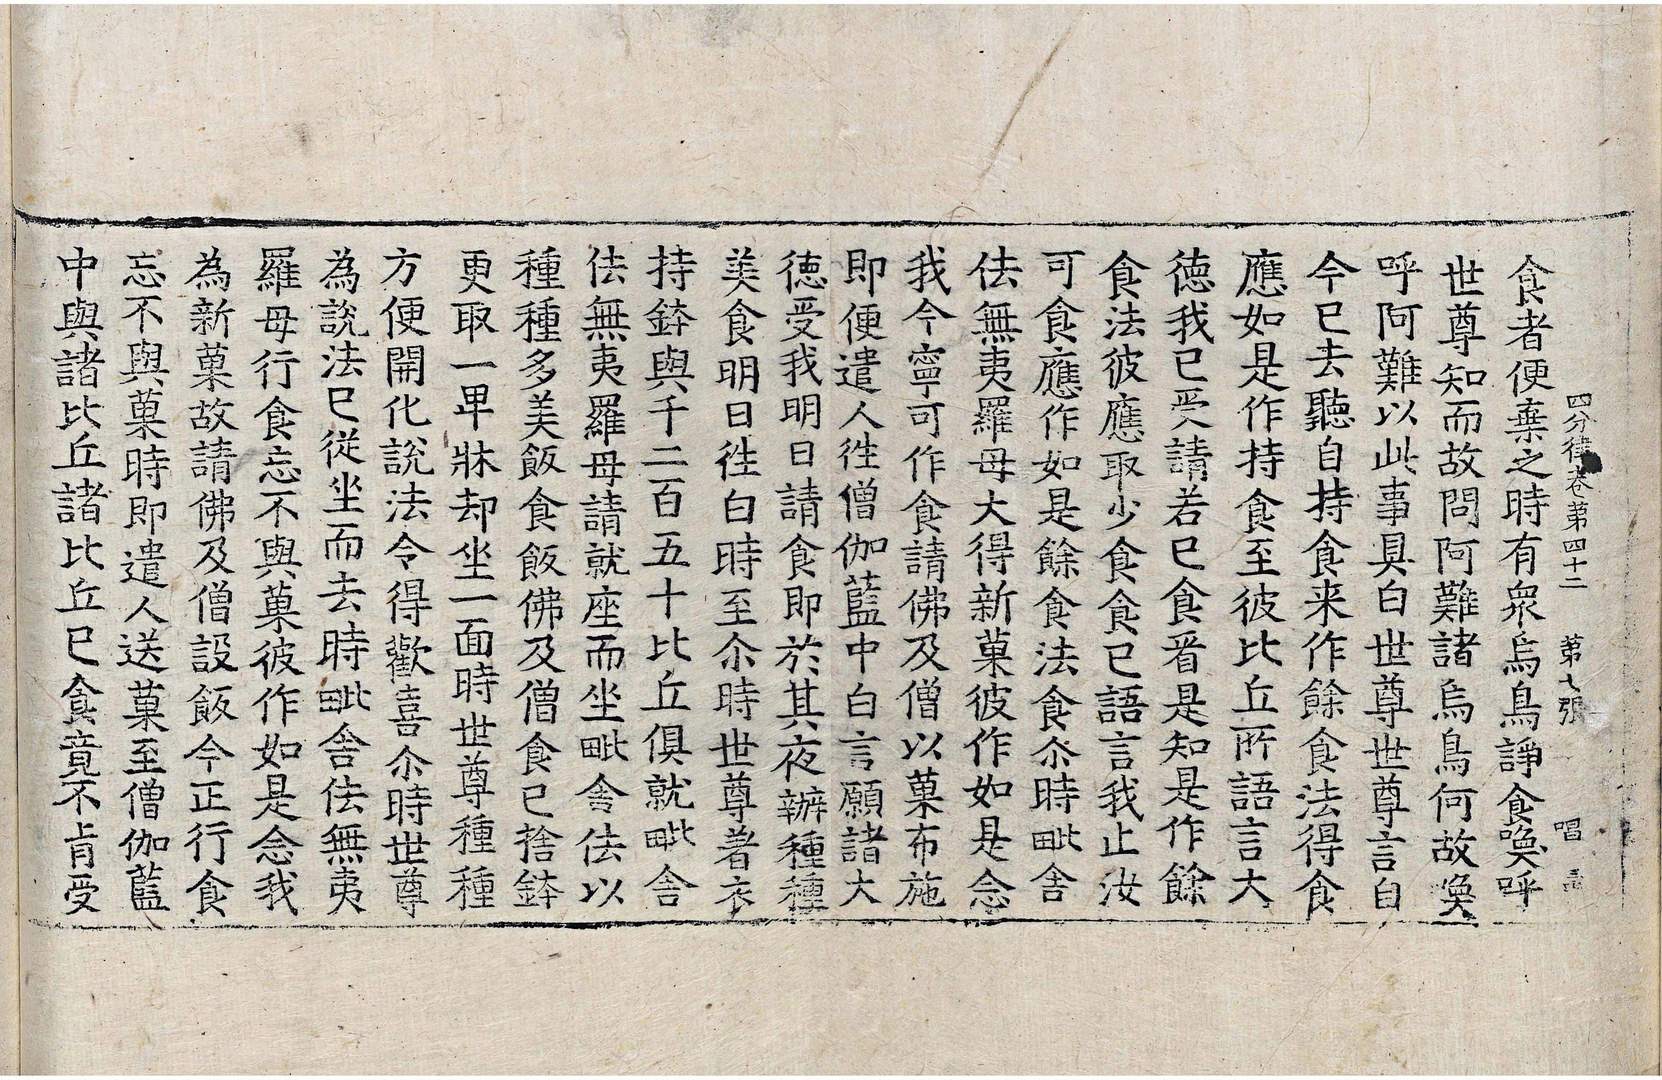 四分律卷第四十二 第七張 唱
食者便棄之時有衆烏鳥諍食喚呼
世尊知而故問阿難諸烏鳥何故喚
呼阿難以此事具白世尊世尊言自
今已去聽自持食来作餘食法得食
應如是作持食至彼比丘所語言大
徳我已受請若已食㸔是知是作餘
食法彼應取少食食已語言我止汝
可食應作如是餘食法食尒時毗舎
佉無夷羅母大得新菓彼作如是念
我今寧可作食請佛及僧以菓布施
即便遣人徃僧伽藍中白言願諸大
徳受我明日請食即於其夜辦種種
美食明日徃白時至尒時世尊著衣
持鉢與千二百五十比丘俱就毗舎
佉無夷羅母請就座而坐毗舎佉以
種種多美飯食飯佛及僧食已捨鉢
更取一卑牀却坐一面時世尊種種
方便開化說法令得歡喜尒時世尊
為說法已從坐而去時毗舎佉無夷
羅母行食忘不與菓彼作如是念我
為新菓故請佛及僧設飯今正行食
忘不與菓時即遣人送菓至僧伽藍
中與諸比丘諸比丘已食竟不肯受